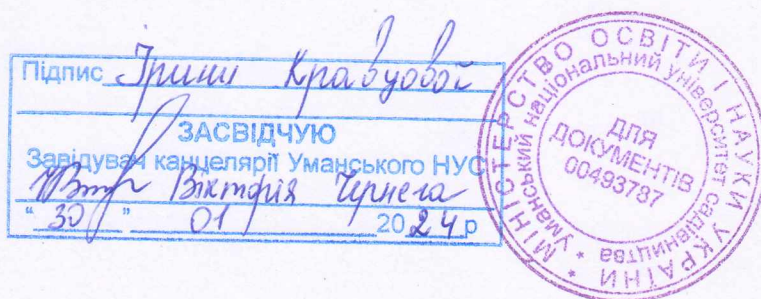 Підпис Ірини Кравцової
ЗАСВІДЧУЮ
Завідувач канцелярії Уманського НУС
Вікторія Чернега
"30" 01 2024 р
* МІНІСТЕРСТВО ОСВІТИ І НАУКИ УКРАЇНИ *
Уманський національний університет садівництва
ДЛЯ
ДОКУМЕНТІВ
00493787